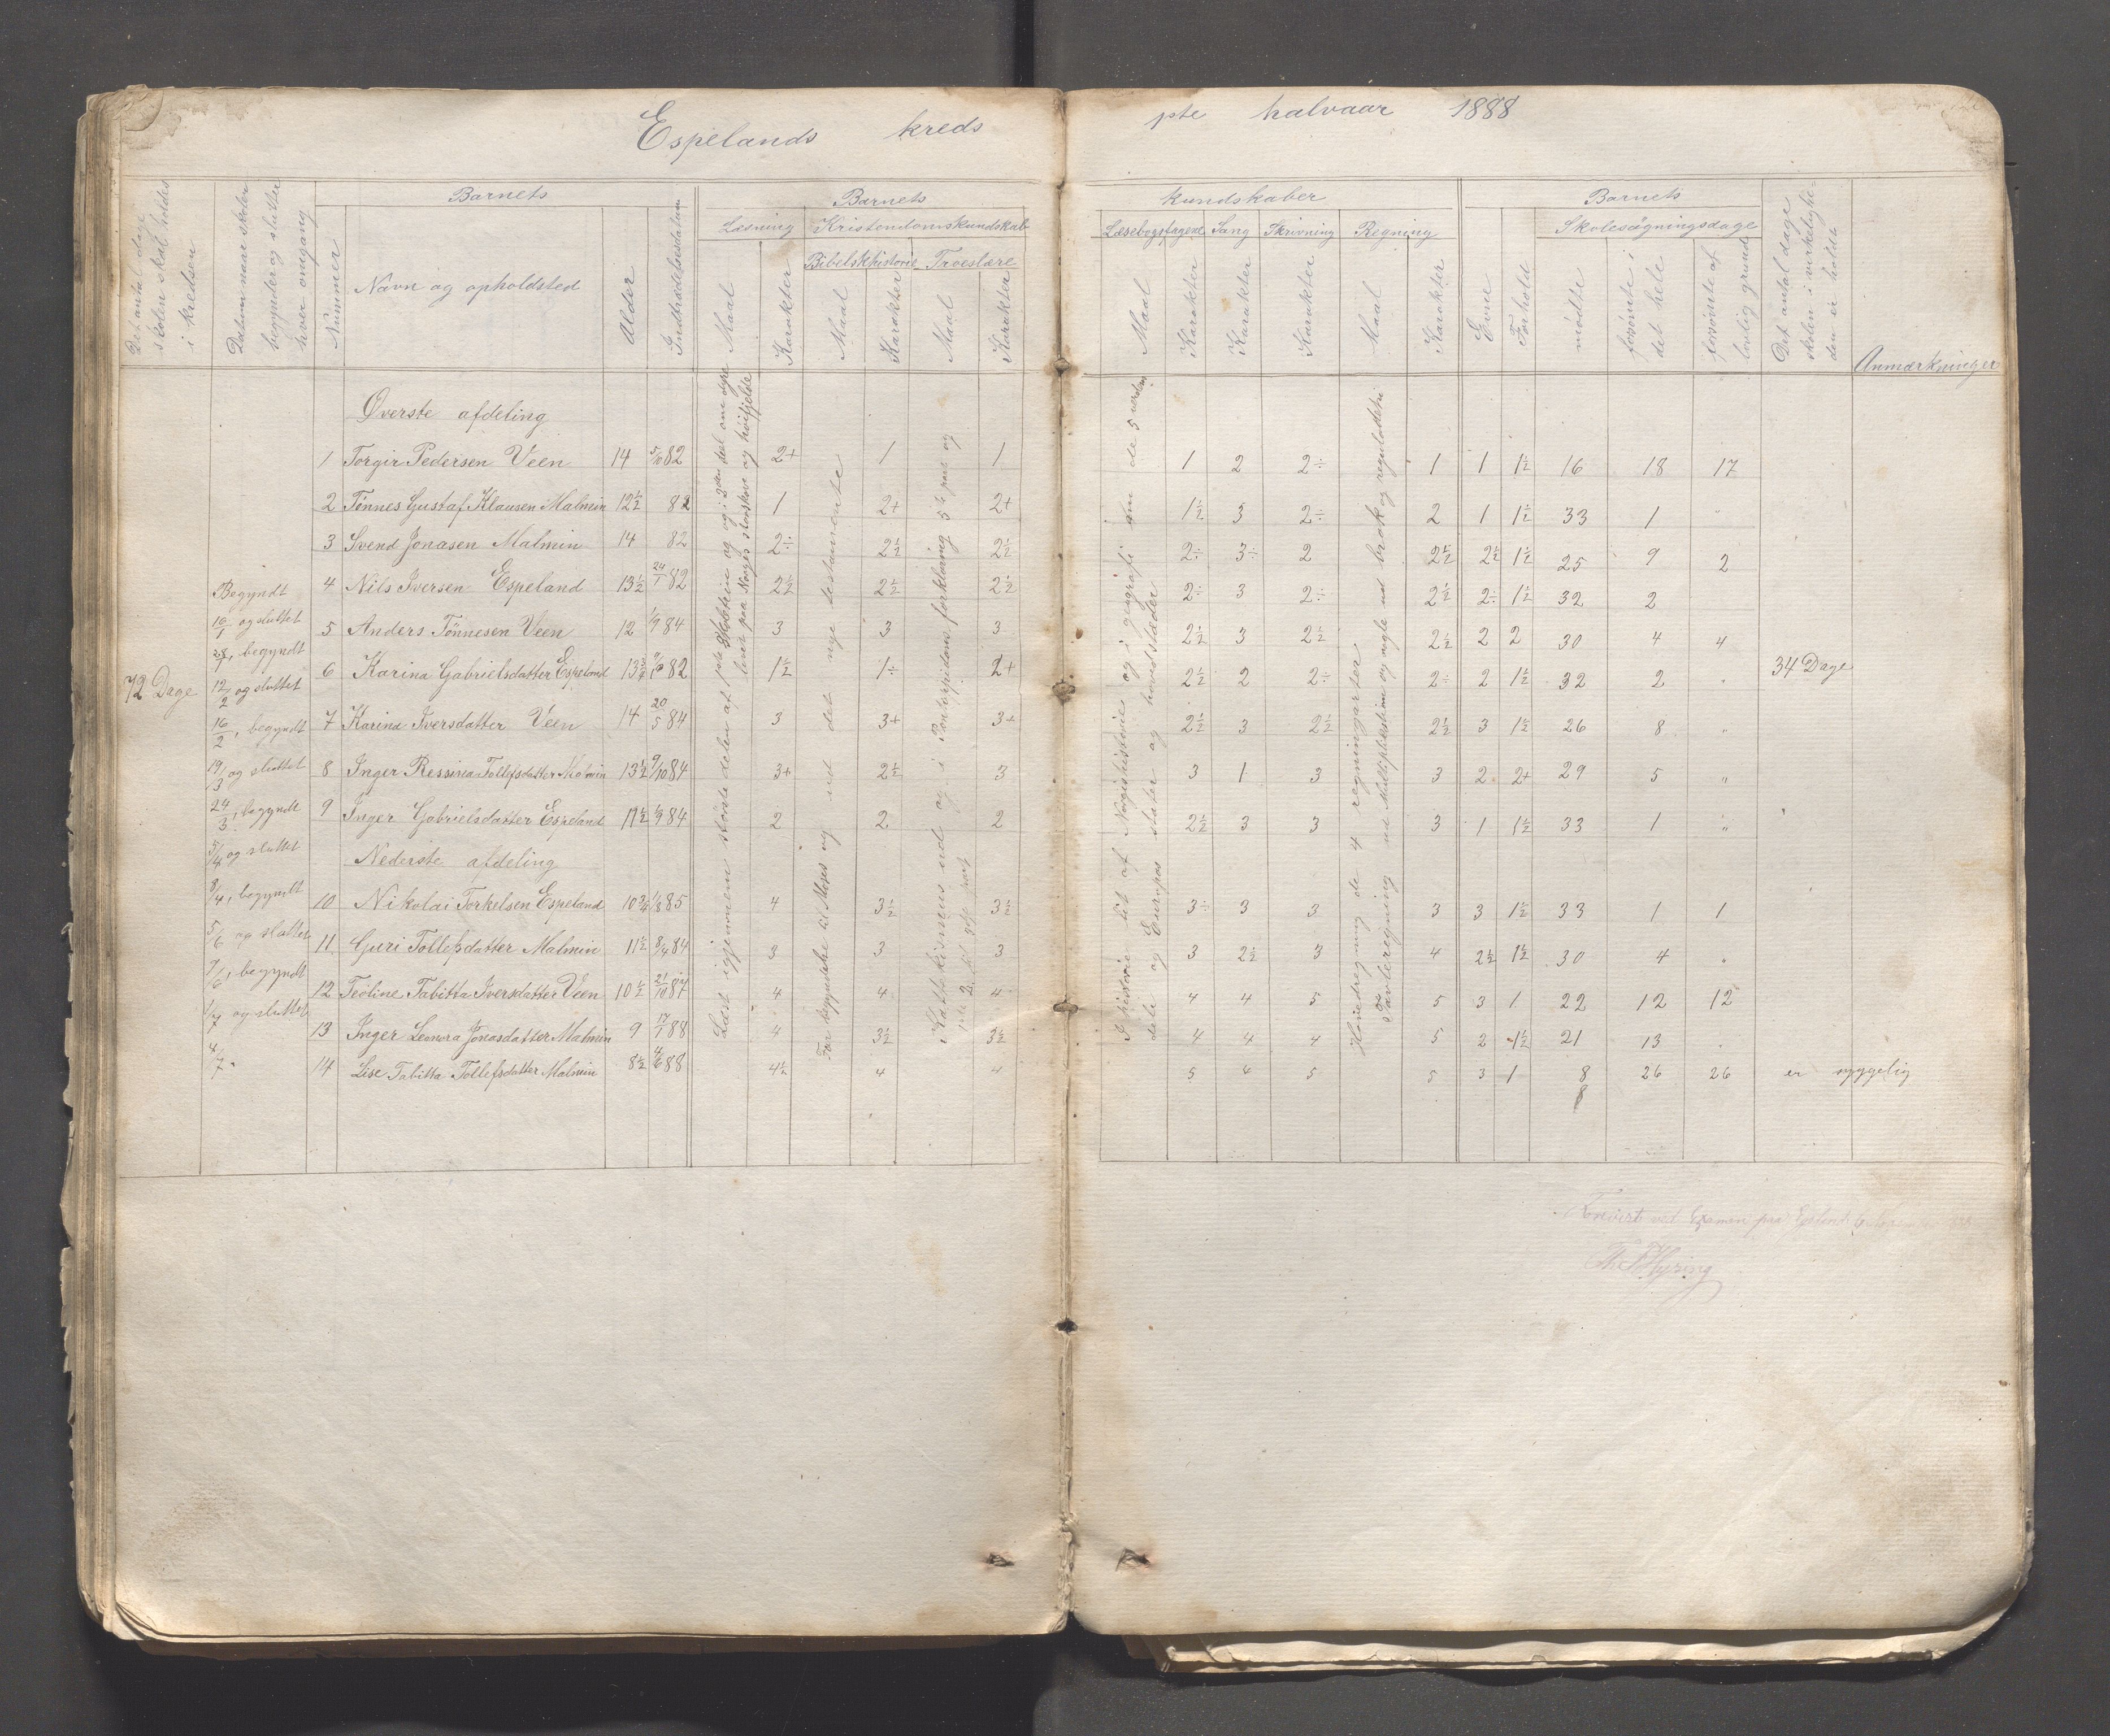 Espelands kreds 1ste halvaar 1888
Det antal dage skolen skal holdes i kredsen
Datum naar skolen begynder og slutter hver omgang
Barnets
Nummer
Navn og opholdsted
Alder
Indtrædelsesdatum
Barnets kundskaber
Læsning
Maal
Karakter
Kristendomskundskab
Bibelskhistorie
Maal
Karakter
Troeslære
Maal
Karakter
Læsebogsfagene
Maal
Karakter
Sang
Karakter
Skrivning
Karakter
Regning
Maal
Karakter
Barnets
Evne
Forhold
Skolesøgningsdage
mødte
forsømte i det hele
forsømte af lovlig grund
Det antal dage skolen i virkelighe-den er holdt
Anmærkninger
72 Dage
Begyndt
10/1 og sluttet
28/1, begyndt
12/2 og sluttet
16/2, begyndt
19/3 og sluttet
24/3, begyndt
5/4 og sluttet
8/4, begyndt
5/6 og sluttet
7/6, begyndt
1/7 og sluttet
4/7.
Øverste afdeling
1 Torgir Pedersen Veen 14 5/10 82 2+ 1 1 1 2 2÷ 1 1 1½ 16 18 17
2 Tønnes Gustaf Klausen Malmin 12½ 82 1 2+ 2+ 1½ 3 2÷ 2 1 1½ 33 1 "
3 Svend Jonasen Malmin 14 82 2÷ 2½ 2½ 2÷ 3÷ 2 2½ 2½ 1½ 25 9 2
4 Nils Iversen Espeland 13½ 24/1 82 2½ 2½ 2½ 2÷ 3 2÷ 2½ 2÷ 1½ 32 2
5 Anders Tønnesen Veen 12 1/9 84 3 3 3 2½ 3 2½ 2½ 2 2 30 4 4
6 Karina Gabrielsdatter Espeland 13¾ 82 1½ 1÷ 2+ 2½ 2 2÷ 2÷ 2 1½ 32 2 "
7 Karina Iversdatter Veen 14 20/5 84 3 3+ 3+ 2½ 3 2½ 2½ 3 1½ 26 8 "
8 Inger Ressina Tollefsdatter Malmin 13½ 9/10 84 3+ 2½ 3 3 1 3 3 2 2+ 29 5 "
9 Inger Gabrielsdatter Espeland 11½ 1/9 84 2 2 2 2½ 3 3 3 1 1½ 33 1 "
34 Dage
Nederste afdeling
10 Nikolai Torkelsen Espeland 10¾ 85 4 3½ 3½ 3÷ 3 3 3 3 1½ 33 1 1
11 Guri Tollefsdatter Malmin 11½ 8/4 84 3 3 3 3 2½ 3 4 2½ 1½ 30 4 "
12 Teoline Tabitta Iversdatter Veen 10½ 21/10 87 4 4 4 4 4 5 5 3 1 22 12 12
13 Inger Leonora Jonasdatter Malmin 9 17/1 88 4 3½ 3½ 4 4 4 5 2 1½ 21 13 "
14 Lise Tabitta Tollefsdatter Malmin 8½ 4/6 88 4½ 4 4 5 4 5 5 3 1 8 26 26 er sygelig
8
Læst igjennem største delen af 1ste skoletrin og i 2den deel om dyre
livet paa Norges storskove og høifjelde
For begyndelse til Moses og ud det nye testamente
Katekismus ud og i Pontoppidans forklaring 5te part og
2 til 3die part
I historie lidt af Norgeshistorie og i geografi om de 5 verdens
dele og Europas stater og hovedstæder
Hovedregning de 4 regningarter ud brøk og reguladetri
Tavleregning ud Multiplikation og nogle
ved Examen paa Espeland
Th. S. Hyring